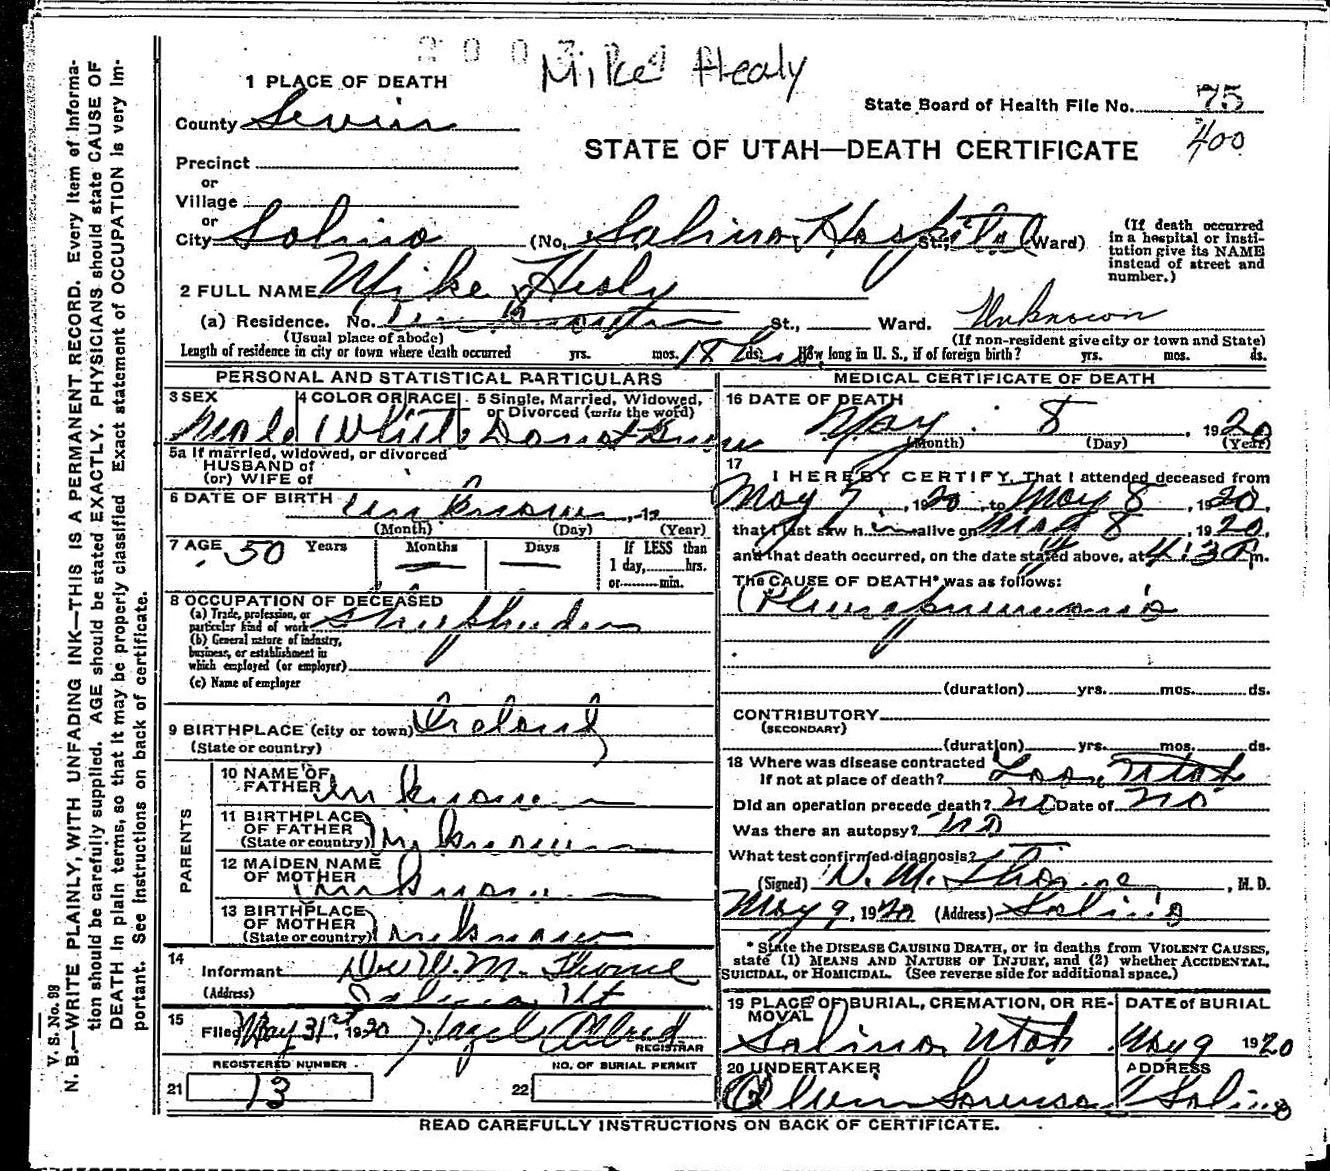 Mike Healy
1 PLACE OF DEATH
State Board of Health File No. 75
400
County Sevier
STATE OF UTAH—DEATH CERTIFICATE
Precinct
or
Village
or
City Salina (No. Salina Hospital St.; Ward)
(If death occurred in a hospital or institution give its NAME instead of street and number.)
2 FULL NAME Mike Healy
(a) Residence. No. St., Ward. Unknown
(Usual place of abode) (If non-resident give city or town and State)
Length of residence in city or town where death occurred yrs. mos. 18 hrs ds. How long in U. S., if of foreign birth? yrs. mos. ds.
PERSONAL AND STATISTICAL PARTICULARS
3 SEX Male
4 COLOR OR RACE White
5 Single, Married, Widowed, or Divorced (write the word) Do not know
5a If married, widowed, or divorced
HUSBAND of
(or) WIFE of
6 DATE OF BIRTH unknown, 19
(Month) (Day) (Year)
7 AGE 50 Years Months — Days —
If LESS than 1 day, hrs. or min.
8 OCCUPATION OF DECEASED
(a) Trade, profession, or particular kind of work Sheepherder
(b) General nature of industry, business, or establishment in which employed (or employer)
(c) Name of employer
9 BIRTHPLACE (city or town) Ireland
(State or country)
PARENTS
10 NAME OF FATHER Unknown
11 BIRTHPLACE OF FATHER (State or country) Unknown
12 MAIDEN NAME OF MOTHER Unknown
13 BIRTHPLACE OF MOTHER (State or country) Unknown
14 Informant Dr. W. M. Thorne
(Address) Salina, Ut
15 Filed May 31st, 1920 Hazel Allred
REGISTRAR
REGISTERED NUMBER
21 13
NO. OF BURIAL PERMIT
22
MEDICAL CERTIFICATE OF DEATH
16 DATE OF DEATH May 8, 1920
(Month) (Day) (Year)
17 I HEREBY CERTIFY, That I attended deceased from
May 7, 1920, to May 8, 1920,
that I last saw him alive on May 8, 1920,
and that death occurred, on the date stated above, at 4:30 Pm.
The CAUSE OF DEATH* was as follows:
Pleuropneumonia
(duration) yrs. mos. ds.
CONTRIBUTORY
(SECONDARY)
(duration) yrs. mos. ds.
18 Where was disease contracted
If not at place of death? Loa, Utah
Did an operation precede death? no Date of no
Was there an autopsy? no
What test confirmed diagnosis?
(Signed) W. M. Thorne, M. D.
May 9, 1920 (Address) Salina
* State the DISEASE CAUSING DEATH, or in deaths from VIOLENT CAUSES, state (1) MEANS AND NATURE OF INJURY, and (2) whether ACCIDENTAL, SUICIDAL, or HOMICIDAL. (See reverse side for additional space.)
19 PLACE OF BURIAL, CREMATION, OR REMOVAL Salina Utah
DATE of BURIAL May 9 1920
20 UNDERTAKER Sorensen
ADDRESS Salina
READ CAREFULLY INSTRUCTIONS ON BACK OF CERTIFICATE.
V. S. No. 98
N. B.—WRITE PLAINLY, WITH UNFADING INK—THIS IS A PERMANENT RECORD. Every item of information should be carefully supplied. AGE should be stated EXACTLY. PHYSICIANS should state CAUSE OF DEATH in plain terms, so that it may be properly classified. Exact statement of OCCUPATION is very important. See instructions on back of certificate.